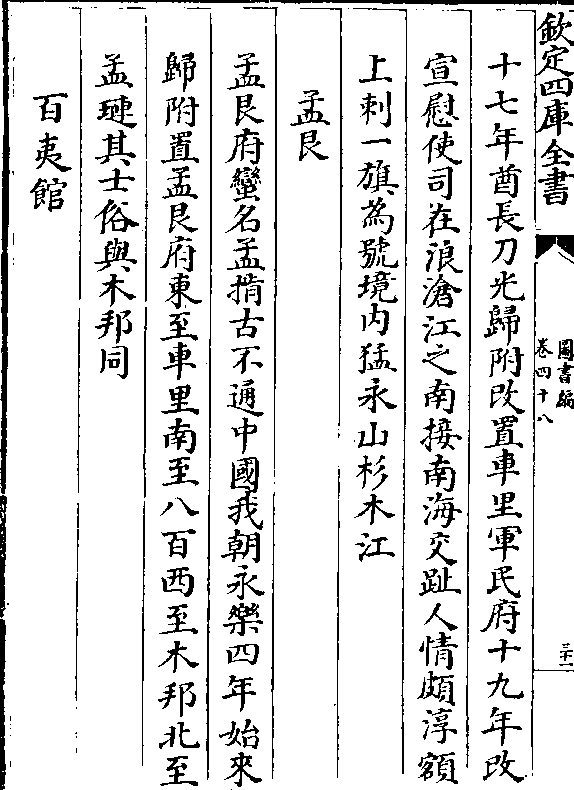 欽定四庫全書
圖書編
卷四十八
三十一
十七年酋長刀光歸附改置車里軍民府十九年改
宣慰使司在浪滄江之南接南海交趾人情頗淳額
上刺一旗為號境内猛永山杉木江
孟艮
孟艮府蠻名孟揹古不通中國我朝永樂四年始來
歸附置孟艮府東至車里南至八百西至木邦北至
孟璉其士俗與木邦同
百夷館